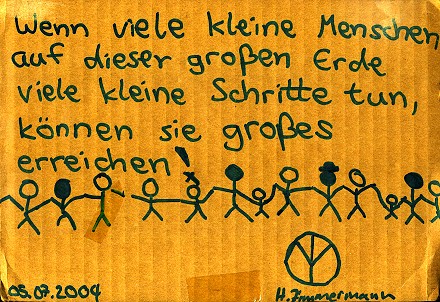 Wenn viele kleine Menschen
auf dieser großen Erde
viele kleine Schritte tun,
können sie großes
erreichen!
05.07.2004
H. Zimmermann